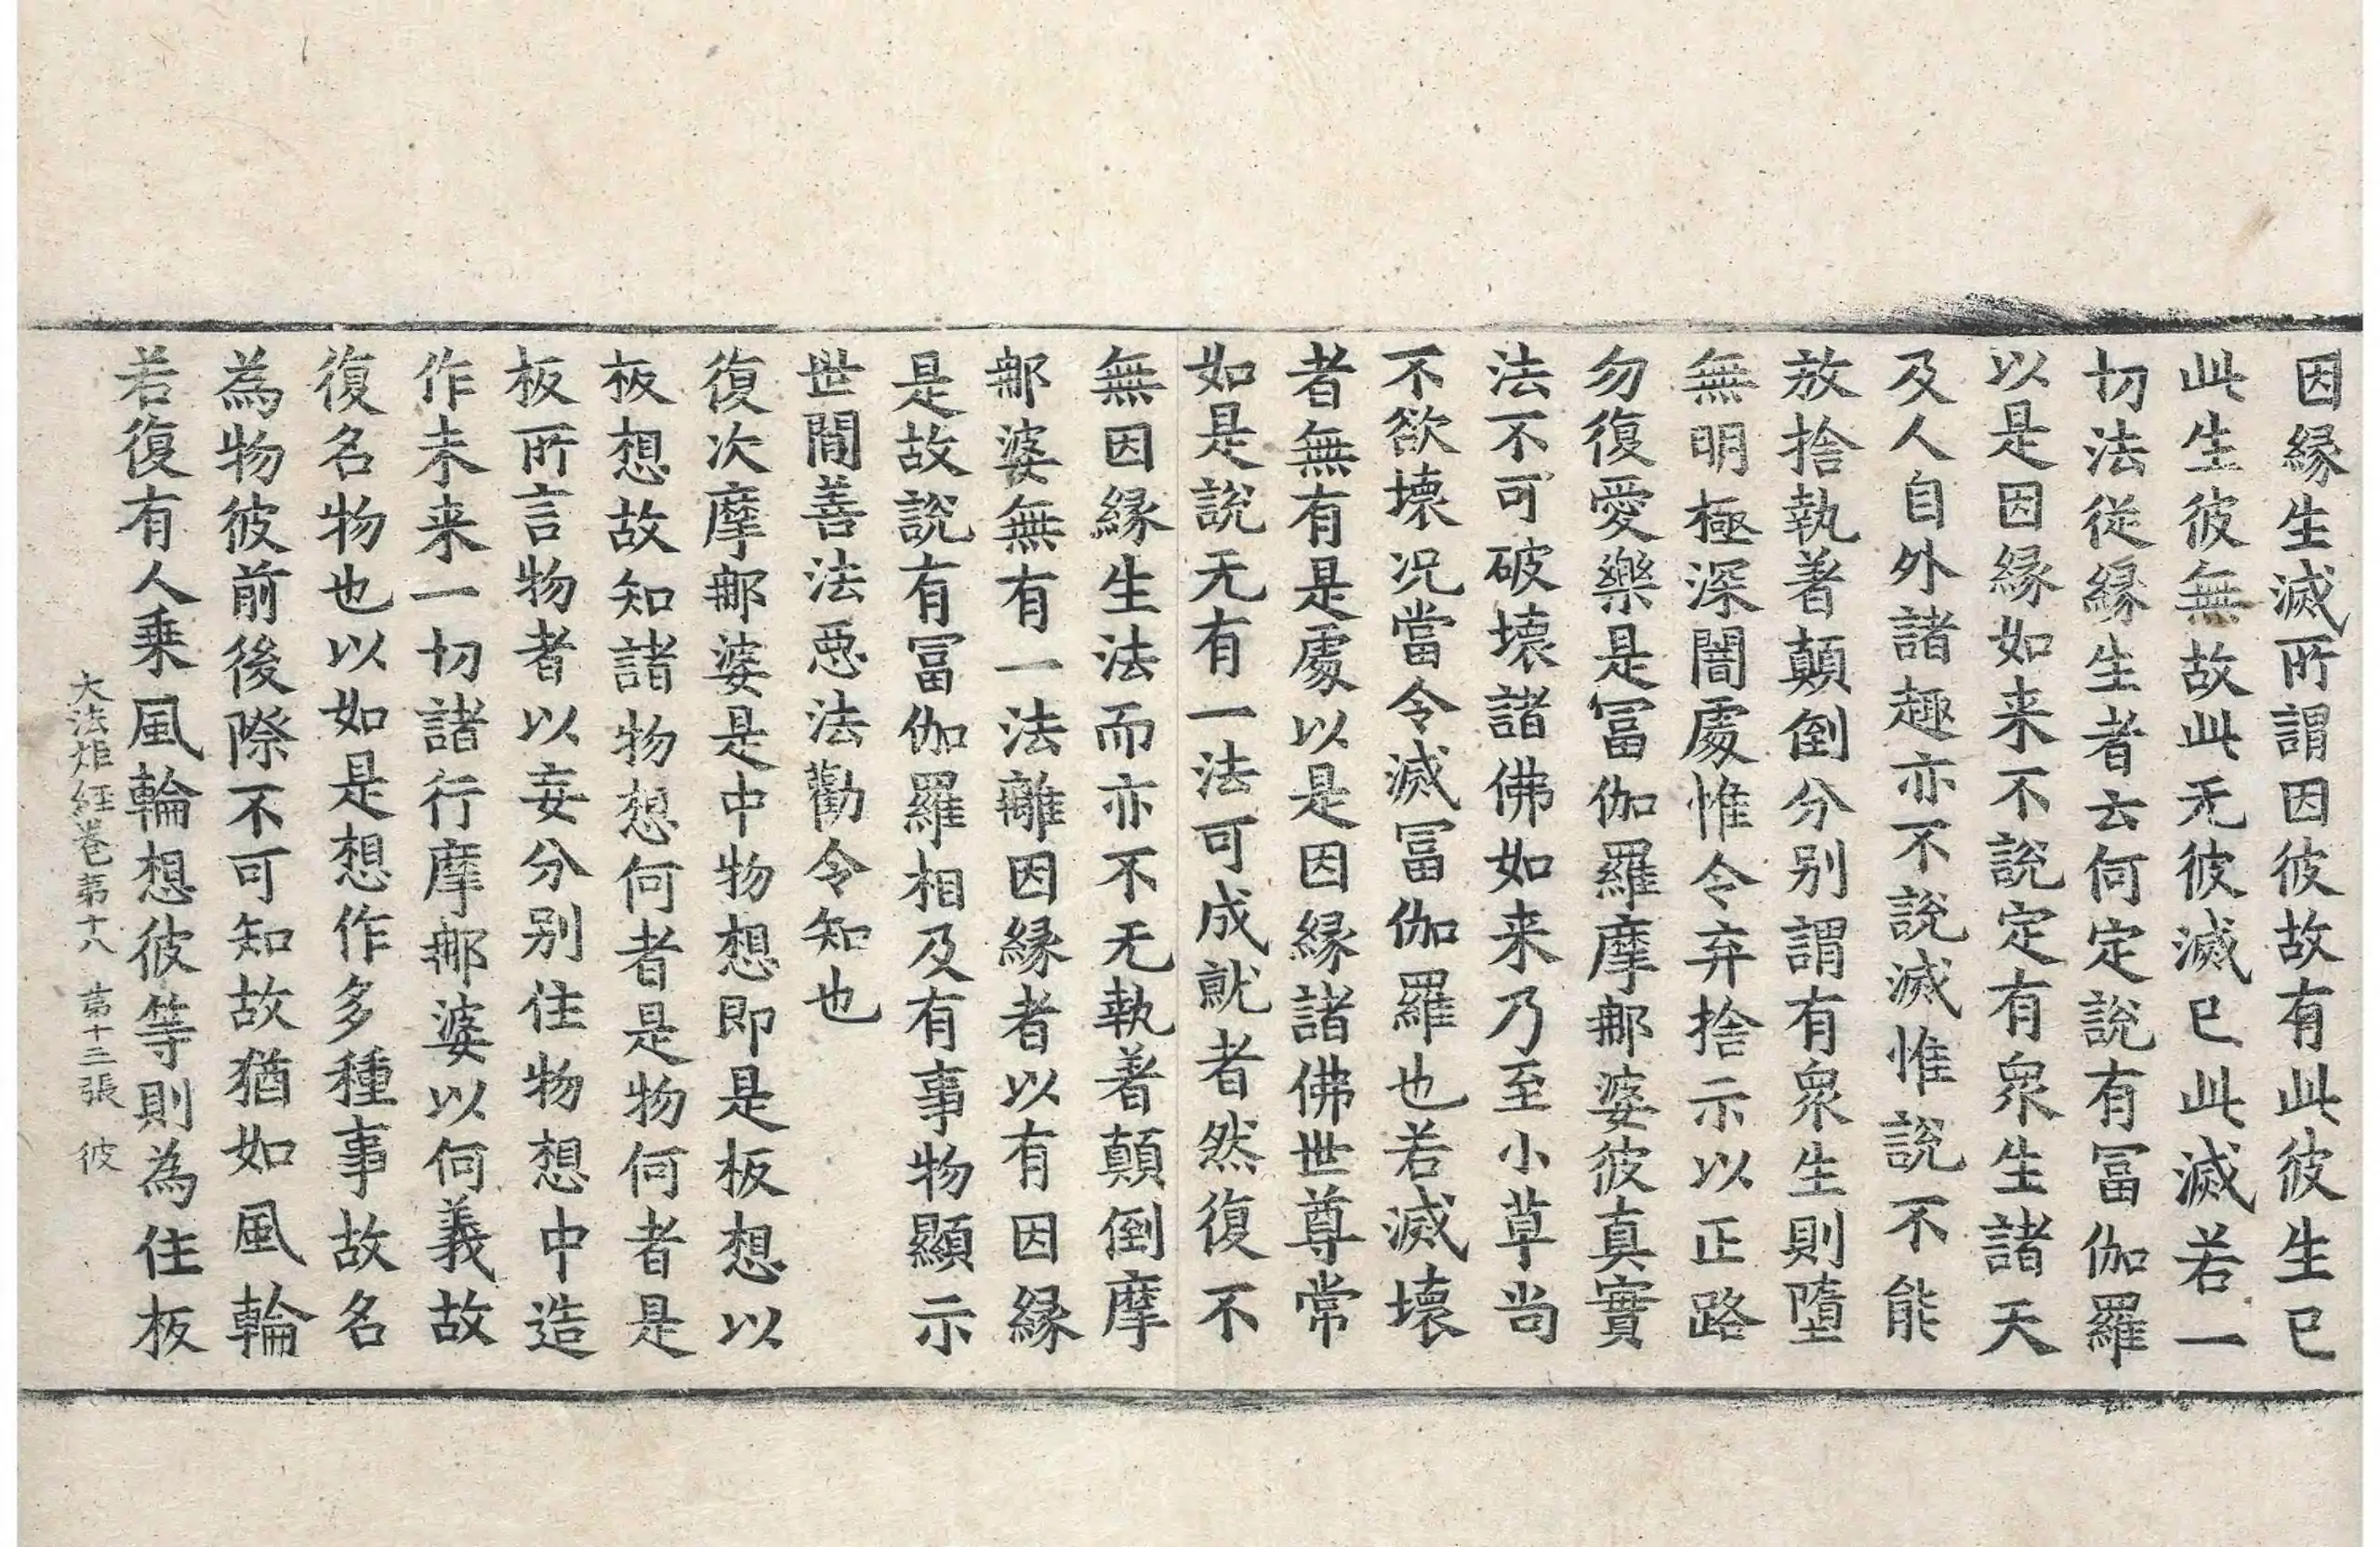 因縁生滅所謂因彼故有此彼生已
此生彼無故此无彼滅已此滅若一
切法從縁生者云何定說有冨伽羅
以是因縁如来不說定有衆生諸天
及人自外諸趣亦不說滅惟說不能
放捨執著顛倒分别謂有衆生則墮
無明極深闇處惟令弃捨示以正路
勿復愛樂是冨伽羅摩鄁婆彼真實
法不可破壞諸佛如来乃至小草尚
不欲壞况當令滅冨伽羅也若滅壞
者無有是處以是因縁諸佛世尊常
如是說无有一法可成就者然復不
無因縁生法而亦不无執著顛倒摩
鄁婆無有一法離因縁者以有因縁
是故說有冨伽羅相及有事物顯示
世間善法惡法勸令知也
復次摩鄁婆是中物想即是板想以
板想故知諸物想何者是物何者是
板所言物者以妄分别住物想中造
作未来一切諸行摩鄁婆以何義故
復名物也以如是想作多種事故名
為物彼前後際不可知故猶如風輪
若復有人乗風輪想彼等則為住板
大法炬経卷第十八 第十三張 彼